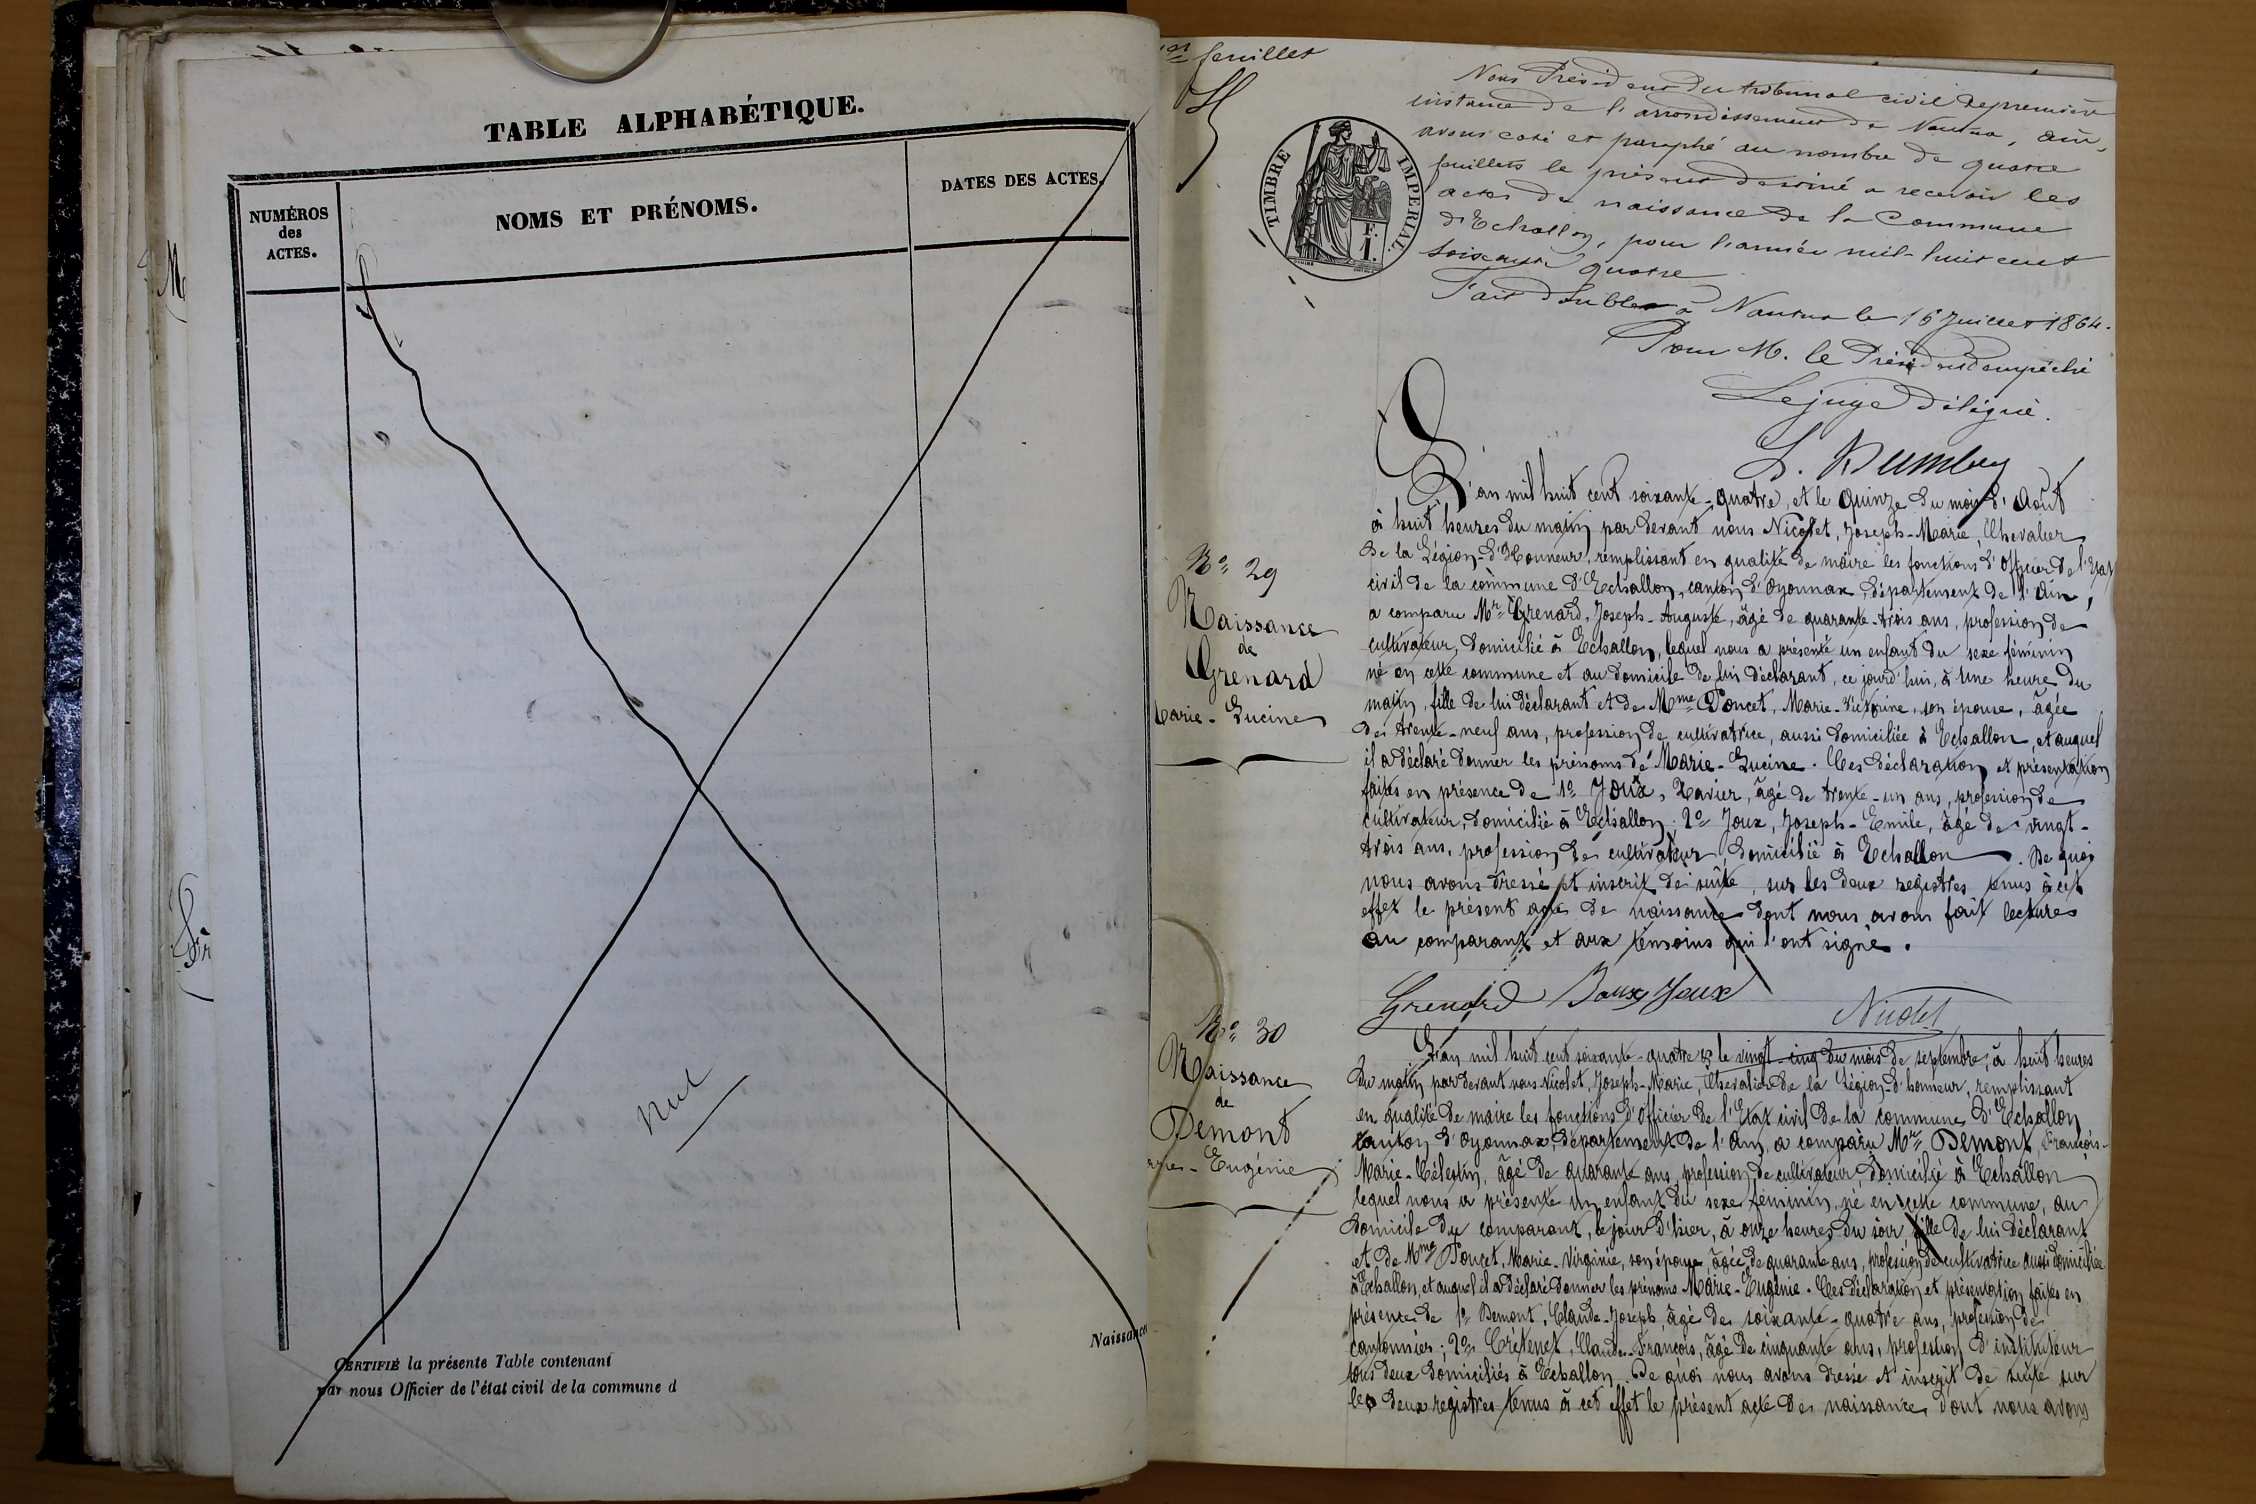 TABLE ALPHABÉTIQUE.
NUMÉROS
des
ACTES.
NOMS ET PRÉNOMS.
DATES DES ACTES.
Nul
Naissance
CERTIFIÉ la présente Table contenant
par nous Officier de l'état civil de la commune d
feuillet
Nous Président du tribunal civil de première
instance de l'arrondissement de Nantua, ain,
avons coté et paraphé au nombre de quatre
feuillets le présent destiné a recevoir les
actes de naissance de la Commune
d'Echallon, pour l'année mil-huit cent
soixante quatre
Fait double à Nantua le 16 Juillet 1864.
Pour M. le Président empêché
Le juge délégué.
TIMBRE IMPERIAL.
F.
1.
L'an mil huit cent soixante-quatre, et le quinze du mois d'Août
à huit heures du matin par devant nous Nicolet, Joseph-Marie, Chevalier
de la Légion-d'Honneur, remplissant en qualité de maire les fonctions d'Officier de l'Etat
civil de la commune d'Echallon, canton d'Oyonnax, département de l'Ain,
a comparu Mr Grenard, Joseph-Auguste, âgé de quarante-trois ans, profession de
cultivateur, domicilié à Echallon, lequel nous a présenté un enfant du sexe féminin
né en cette commune et au domicile de lui déclarant, ce jourd'hui, à une heure du
matin, fille de lui déclarant et de Mme Poncet, Marie-Victorine, son épouse, âgée
de trente-neuf ans, profession de cultivatrice, aussi domiciliée à Echallon, et auquel
il a déclaré donner les prénoms de Marie-Lucine. Ces déclaration et présentation
faites en présence de 1º Joux, Xavier, âgé de trente-un ans, profession de
cultivateur, domicilié à Echallon; 2º Joux, Joseph-Emile, âgé de vingt-
trois ans, profession de cultivateur, domicilié à Echallon. De quoi
nous avons dressé et inscrit de suite, sur les deux registres tenus à cet
effet le présent acte de naissance dont nous avons fait lectures
au comparant et aux témoins qui l'ont signé.
Nº 29
Naissance
de
Grenard
Marie-Lucine
Grenard Joux Joux
Nicolet
Nº 30
Naissance
de
Demont
Eugénie
L'an mil huit cent soixante-quatre et le vingt-cinq du mois de septembre, à huit heures
du matin par devant nous Nicolet, Joseph-Marie, Chevalier de la Légion-d'honneur, remplissant
en qualité de maire les fonctions d'Officier de l'Etat civil de la commune d'Echallon
canton d'Oyonnax, département de l'Ain, a comparu Mr Demont, François-
Marie-Célestin, âgé de quarante ans, profession de cultivateur, domicilié à Echallon
lequel nous a présenté un enfant du sexe féminin, né en cette commune, au
domicile du comparant, le jour d'hier, à onze heures du soir, fille de lui déclarant
et de Mme Poncet, Marie-Virginie, son épouse, âgée de quarante ans, profession de cultivatrice aussi domiciliée
à Echallon, et auquel il a déclaré donner les prénoms Marie-Eugénie. Ces déclaration et présentation faites en
présence de 1º Demont, Claude-Joseph, âgé de soixante-quatre ans, profession de
cantonnier; 2º Crétenet, Claude-François, âgé de cinquante ans, profession d'instituteur
tous deux domiciliés à Echallon. De quoi nous avons dressé et inscrit de suite sur
les deux registres tenus à cet effet le présent acte de naissance, dont nous avons